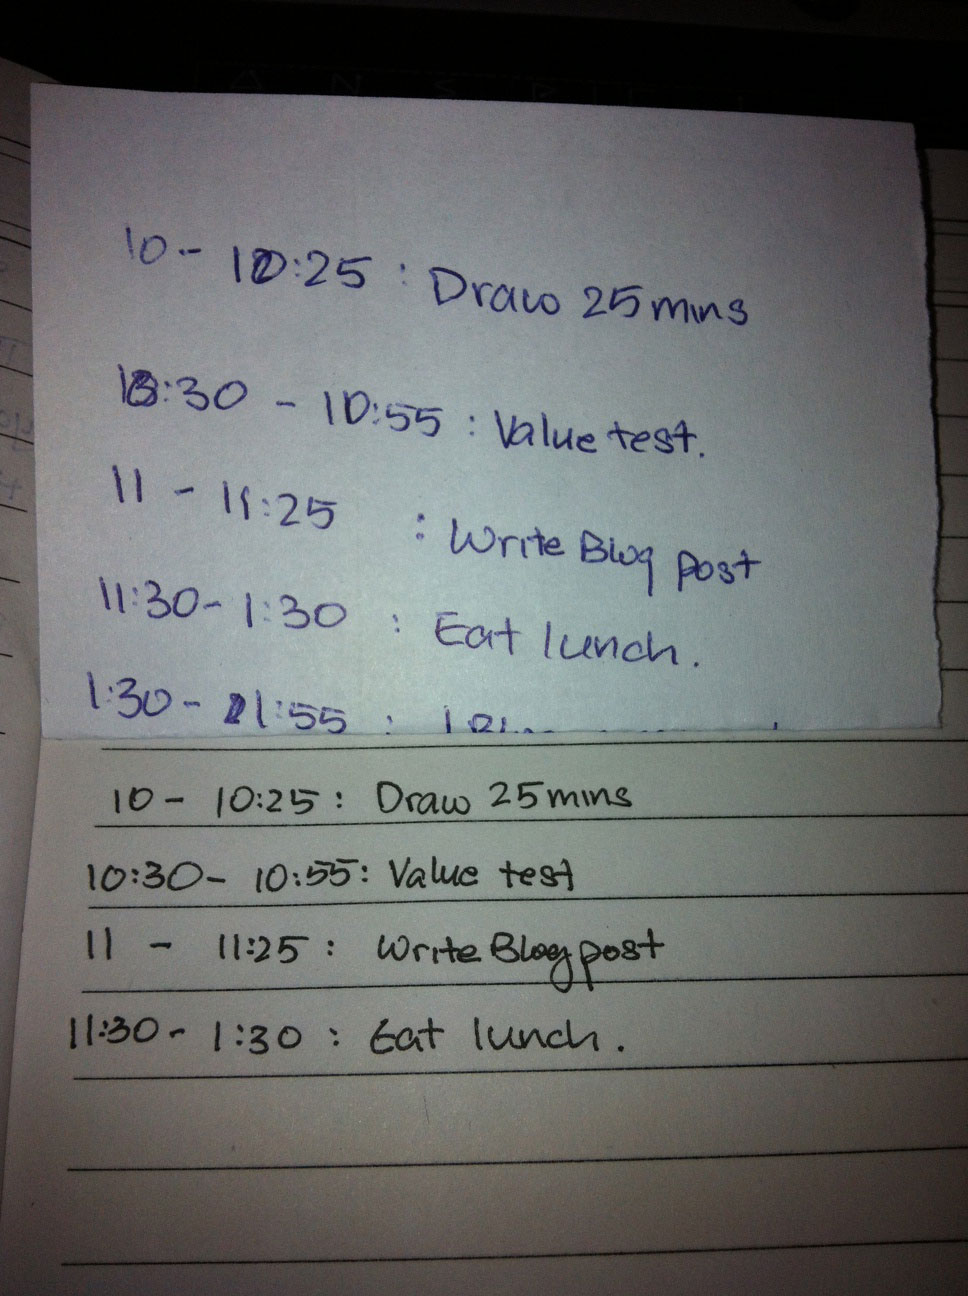 10 - 10:25 : Draw 25 mins
10:30 - 10:55 : Value test.
11 - 11:25 : Write Blog post
11:30 - 1:30 : Eat lunch.
1:30 - 1:55 :
10 - 10:25 : Draw 25 mins
10:30 - 10:55 : Value test
11 - 11:25 : Write Blog post
11:30 - 1:30 : Eat lunch.